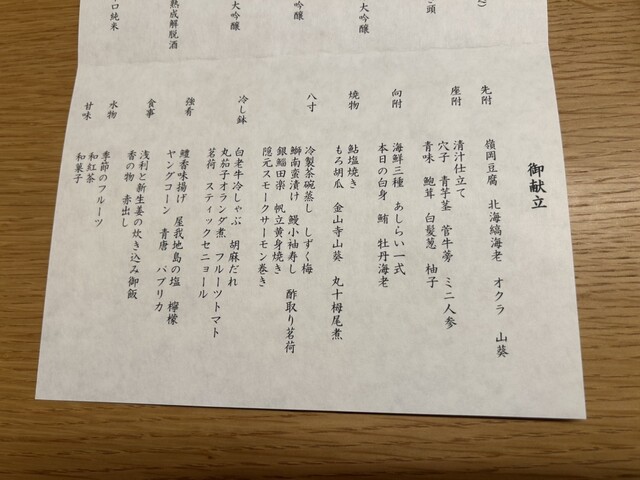 御献立
先附
嶺岡豆腐 北海縞海老 オクラ 山葵
座附
清汁仕立て
穴子 青芋茎 管牛蒡 ミニ人参
青味 鮑茸 白髪葱 柚子
向附
海鮮三種 あしらい一式
本日の白身 鮪 牡丹海老
焼物
鮎塩焼き
もろ胡瓜 金山寺山葵 丸十栂尾煮
八寸
冷製茶碗蒸し しずく梅
鰤南蛮漬け 鰻小袖寿し 酢取り茗荷
銀鱈田楽 帆立黄身焼き
隠元スモークサーモン巻き
冷し鉢
白老牛冷しゃぶ 胡麻だれ
丸茄子オランダ煮 フルーツトマト
茗荷 スティックセニョール
強肴
鱧香味揚げ 屋我地島の塩 檸檬
ヤングコーン 青唐 パプリカ
食事
浅利と新生姜の炊き込み御飯
香の物 赤出し
水物
季節のフルーツ
甘味
和紅茶
和菓子
頭
大吟醸
吟醸
大吟醸
熟成解脱酒
口純米